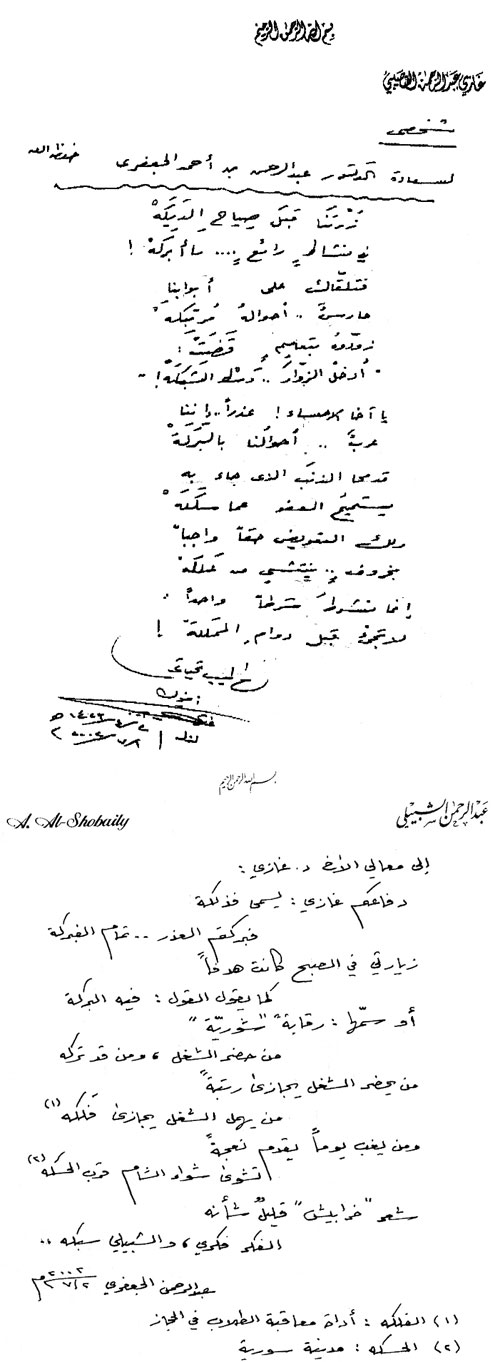 بسم الله الرحمن الرحيم
غازي عبدالرحمن القصيبي
شخصي
لسعادة الدكتور عبدالرحمن بن أحمد الجعفري حفظه الله
زُرْتَنَا قبلَ صِياحِ الدِيَكَهْ
في نشاطٍ رائعٍ .... ما أبركَهْ !
فتلقّاك على أبوابنا
حارسٌ .. أحوالهُ مُرتبكَهْ
زوّدوهُ بتعليمٍ قَضَتْ :
" أدخلُ الزوّارَ .. وسْط الشبكَهْ ! "
يا أخا الاحساء ! عذراً .. إننا
عربٌ .. أحوالُنا بالبَرَكَهْ
قد محا الذنبَ الذي جاء بهِ
يستميحُ العفو عما سَلَكَهْ
ولك التعويض حقاً واجباً
بخروفٍ .. ينتشي من عَلَكَهْ
إنما نشترطُ شرطاً واحداً :
لا تجئْ قبل دوامِ المملكَهْ !
مع أطيب تحياتي
أخوك
لندن
بسم الله الرحمن الرحيم
عبدالرحمن الشبيلي
A. Al-Shobaily
إلى معالي الأخ د. غازي :
دفاعكم غازي : يسمى فذلكة
فبركتم العذر .. تمام الفبركة
زيارتي في الصبح كانت هدفاً
كما يقول القول : فيه البركة
أو سمّها : رقابة " شوريّة "
من حضر الشغل ، ومن قد تركه
من يحضر الشغل يجازى رتبةً
من يهمل الشغل يجازى فَلَكه (١)
ومن يغب يوماً يقدم نعجةً
تشوى شواء الشام قرب الحسكه (٢)
شعر " خرابيش " قليلٌ شأنه
الفكر فكري ، والشبيلي سبكه ..
عبدالرحمن الجعفري
(١) الفلكه : أداة معاقبة الطلاب في الحجاز
(٢) الحسكه : مدينة سورية